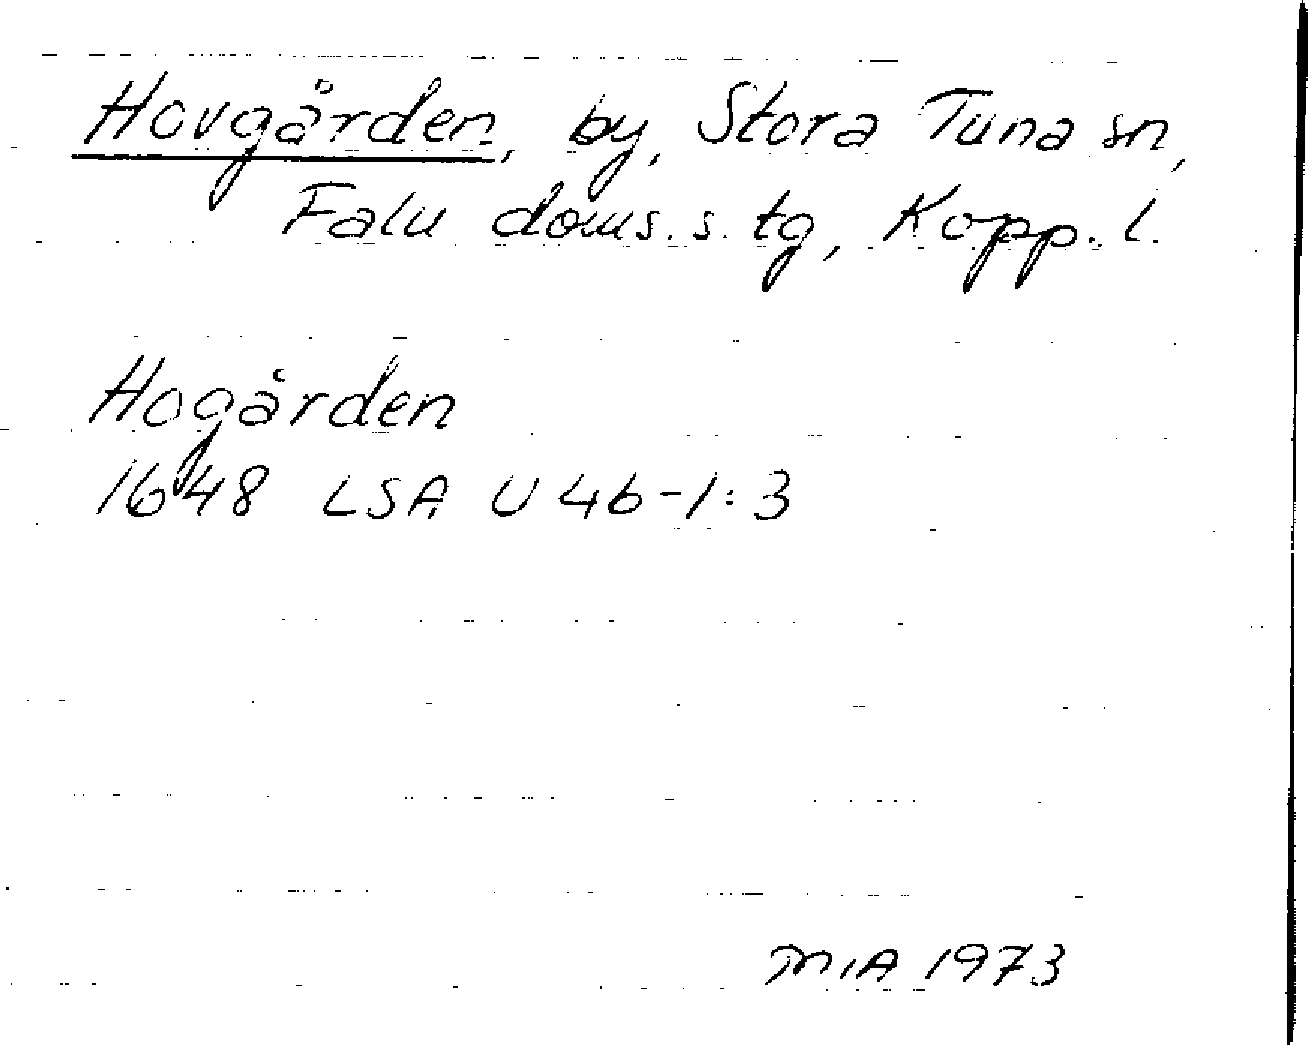 Hovgården, by, Stora Tuna sn,
Falu doms. s. tg, Kopp. l.
Hogården
1648 LSA U 46-1:3
MIA 1973